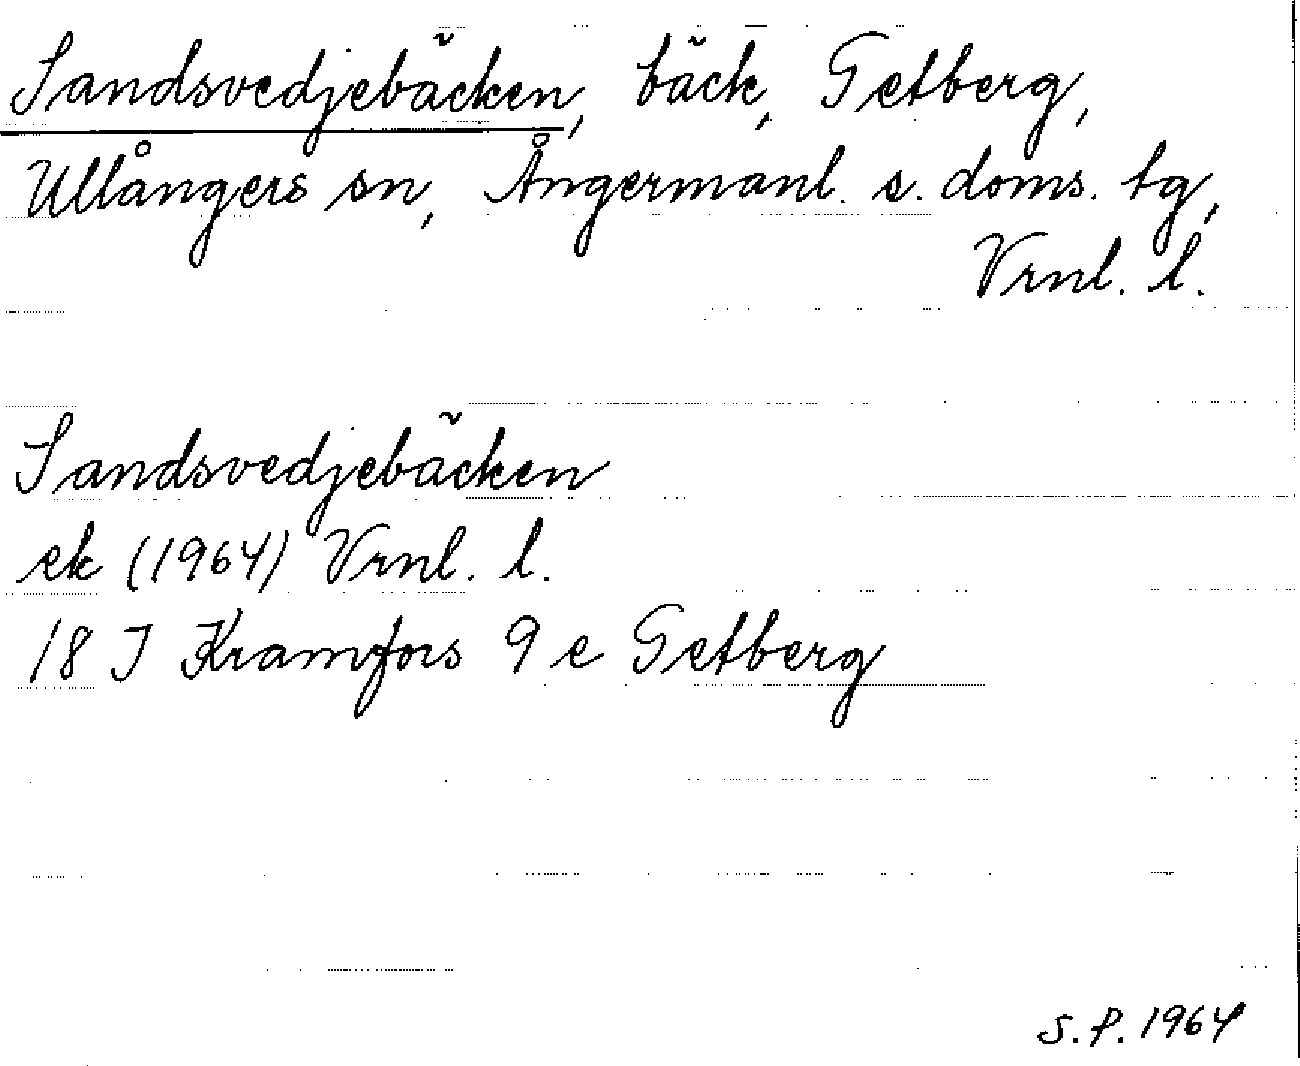 Sandsvedjebäcken, bäck, Getberg,
Ullångers sn, Ångermanl. s. doms. tg,
Vrnl. l.
Sandsvedjebäcken
ek (1964) Vrnl. l.
18 J Kramfors 9 e Getberg
S.P. 1964